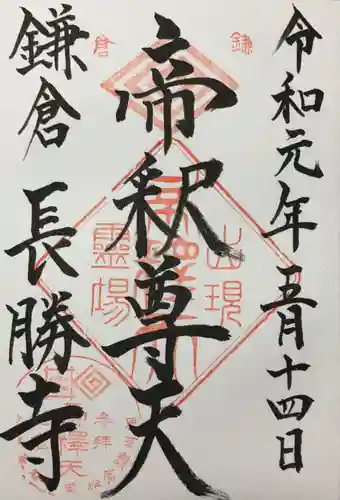 令和元年五月十四日
帝釈尊天
鎌倉 長勝寺
鎌
倉
出現
霊場